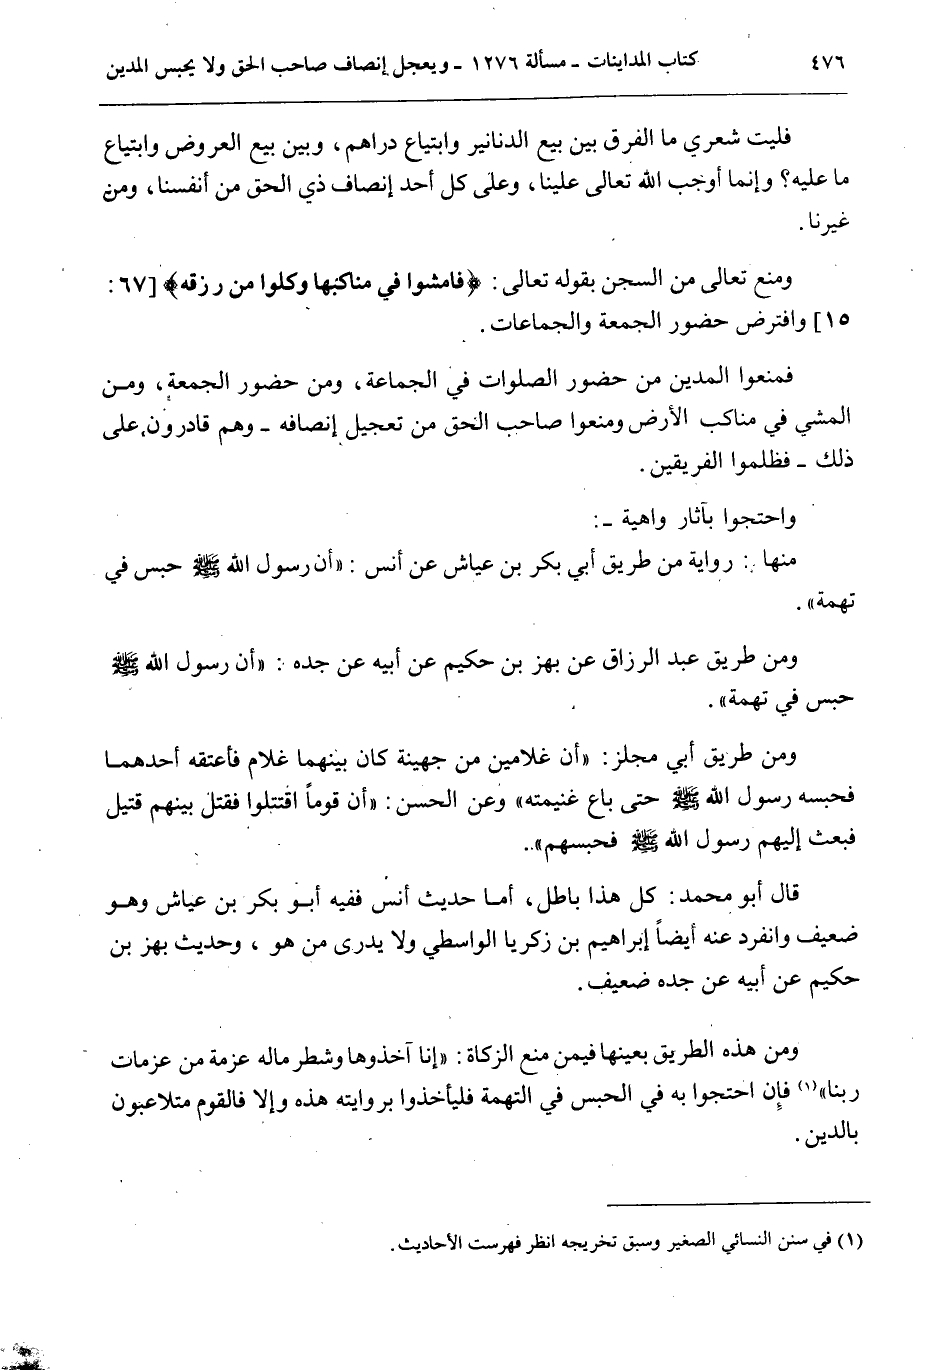 ٤٧٦ كتاب المداينات ـ مسألة ١٢٧٦ ـ ويعجل إنصاف صاحب الحق ولا يحبس المدين
فليت شعري ما الفرق بين بيع الدنانير وابتياع دراهم، وبين بيع العروض وابتياع
ما عليه؟ وإنما أوجب الله تعالى علينا، وعلى كل أحد إنصاف ذي الحق من أنفسنا، ومن
غيرنا.
ومنع تعالى من السجن بقوله تعالى: ﴿فامشوا في مناكبها وكلوا من رزقه﴾ [٦٧:
١٥] وافترض حضور الجمعة والجماعات.
فمنعوا المدين من حضور الصلوات في الجماعة، ومن حضور الجمعة، ومن
المشي في مناكب الأرض ومنعوا صاحب الحق من تعجيل إنصافه ـ وهم قادرون على
ذلك ـ فظلموا الفريقين.
واحتجوا بآثار واهية ـ:
منها: رواية من طريق أبي بكر بن عياش عن أنس: «أن رسول الله ﷺ حبس في
تهمة».
ومن طريق عبد الرزاق عن بهز بن حكيم عن أبيه عن جده: «أن رسول الله ﷺ
حبس في تهمة».
ومن طريق أبي مجلز: «أن غلامين من جهينة كان بينهما غلام فأعتقه أحدهما
فحبسه رسول الله ﷺ حتى باع غنيمته» وعن الحسن: «أن قوماً اقتتلوا فقتل بينهم قتيل
فبعث إليهم رسول الله ﷺ فحبسهم»..
قال أبو محمد: كل هذا باطل، أما حديث أنس ففيه أبو بكر بن عياش وهو
ضعيف وانفرد عنه أيضاً إبراهيم بن زكريا الواسطي ولا يدرى من هو، وحديث بهز بن
حكيم عن أبيه عن جده ضعيف.
ومن هذه الطريق بعينها فيمن منع الزكاة: «إنا آخذوها وشطر ماله عزمة من عزمات
ربنا»(١) فإن احتجوا به في الحبس في التهمة فليأخذوا بروايته هذه وإلا فالقوم متلاعبون
بالدين.
(١) في سنن النسائي الصغير وسبق تخريجه انظر فهرست الأحاديث.